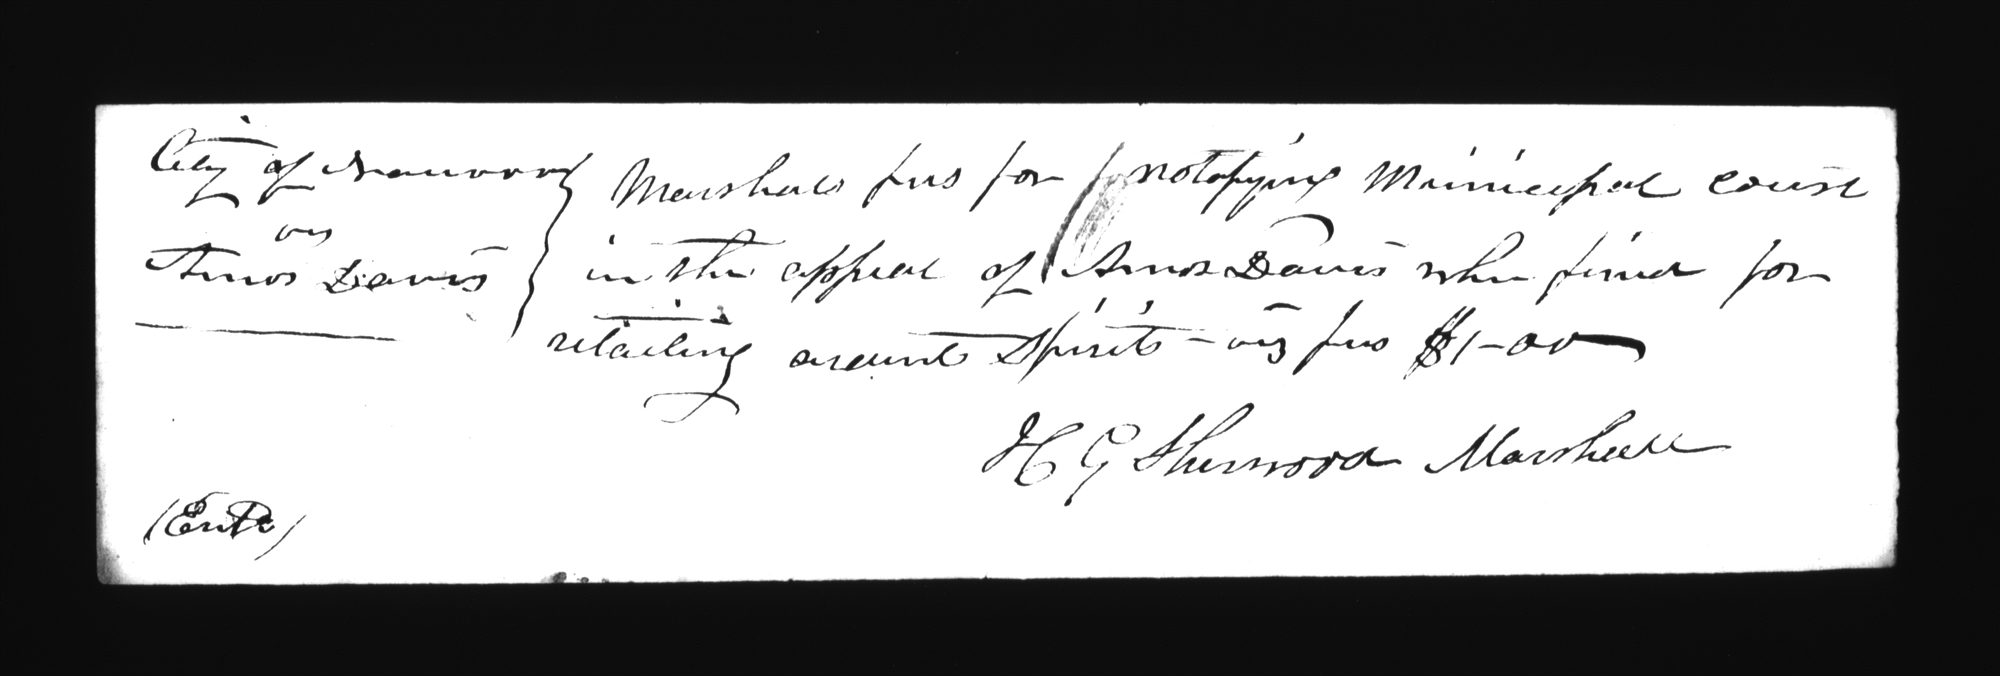 City of Nauvoo
vs
Amos Davis
Marshals fees for notifying Municipal court
in the appeal of Amos Davis when fined for
retailing ardent Spirits – viz fees $1-00
H G Sherwood Marshall